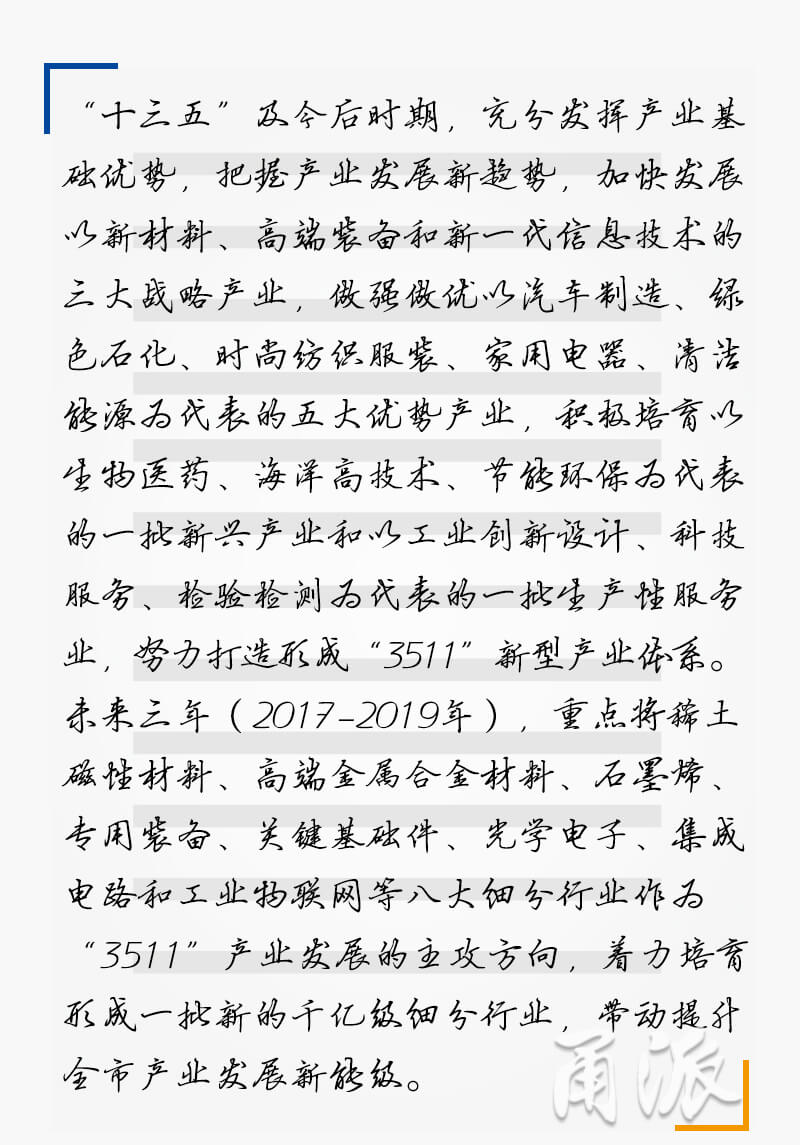 “十三五”及今后时期，充分发挥产业基
础优势，把握产业发展新趋势，加快发展
以新材料、高端装备和新一代信息技术的
三大战略产业，做强做优以汽车制造、绿
色石化、时尚纺织服装、家用电器、清洁
能源为代表的五大优势产业，积极培育以
生物医药、海洋高技术、节能环保为代表
的一批新兴产业和以工业创新设计、科技
服务、检验检测为代表的一批生产性服务
业，努力打造形成“3511”新型产业体系。
未来三年（2017-2019年），重点将稀土
磁性材料、高端金属合金材料、石墨烯、
专用装备、关键基础件、光学电子、集成
电路和工业物联网等八大细分行业作为
“3511”产业发展的主攻方向，着力培育
形成一批新的千亿级细分行业，带动提升
全市产业发展新能级。
甬派